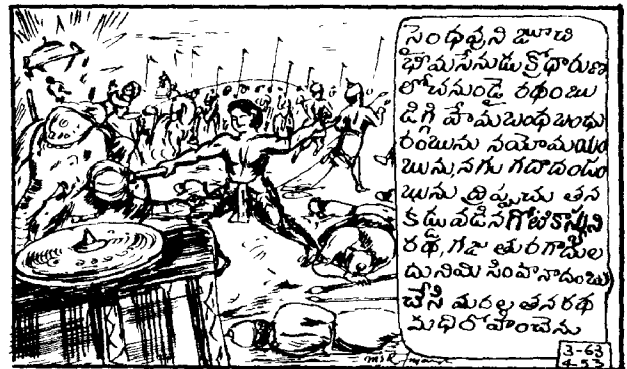 సైంధవుని జూచి
భీమసేనుడు క్రోధారుణ
లోచనుండై రథంబు
డిగ్గి హేమబంధబంధు
రంబును నయోమయం
బును,నగు గదాదండం
బును ద్రిప్పుచు తన
కడ్డువడిన
రథ, గజ తురగాదుల
దునిమి సింహనాదంబు
చేసి మరల్ల తనరథ
మధిరోహించెను
3-63
4-53